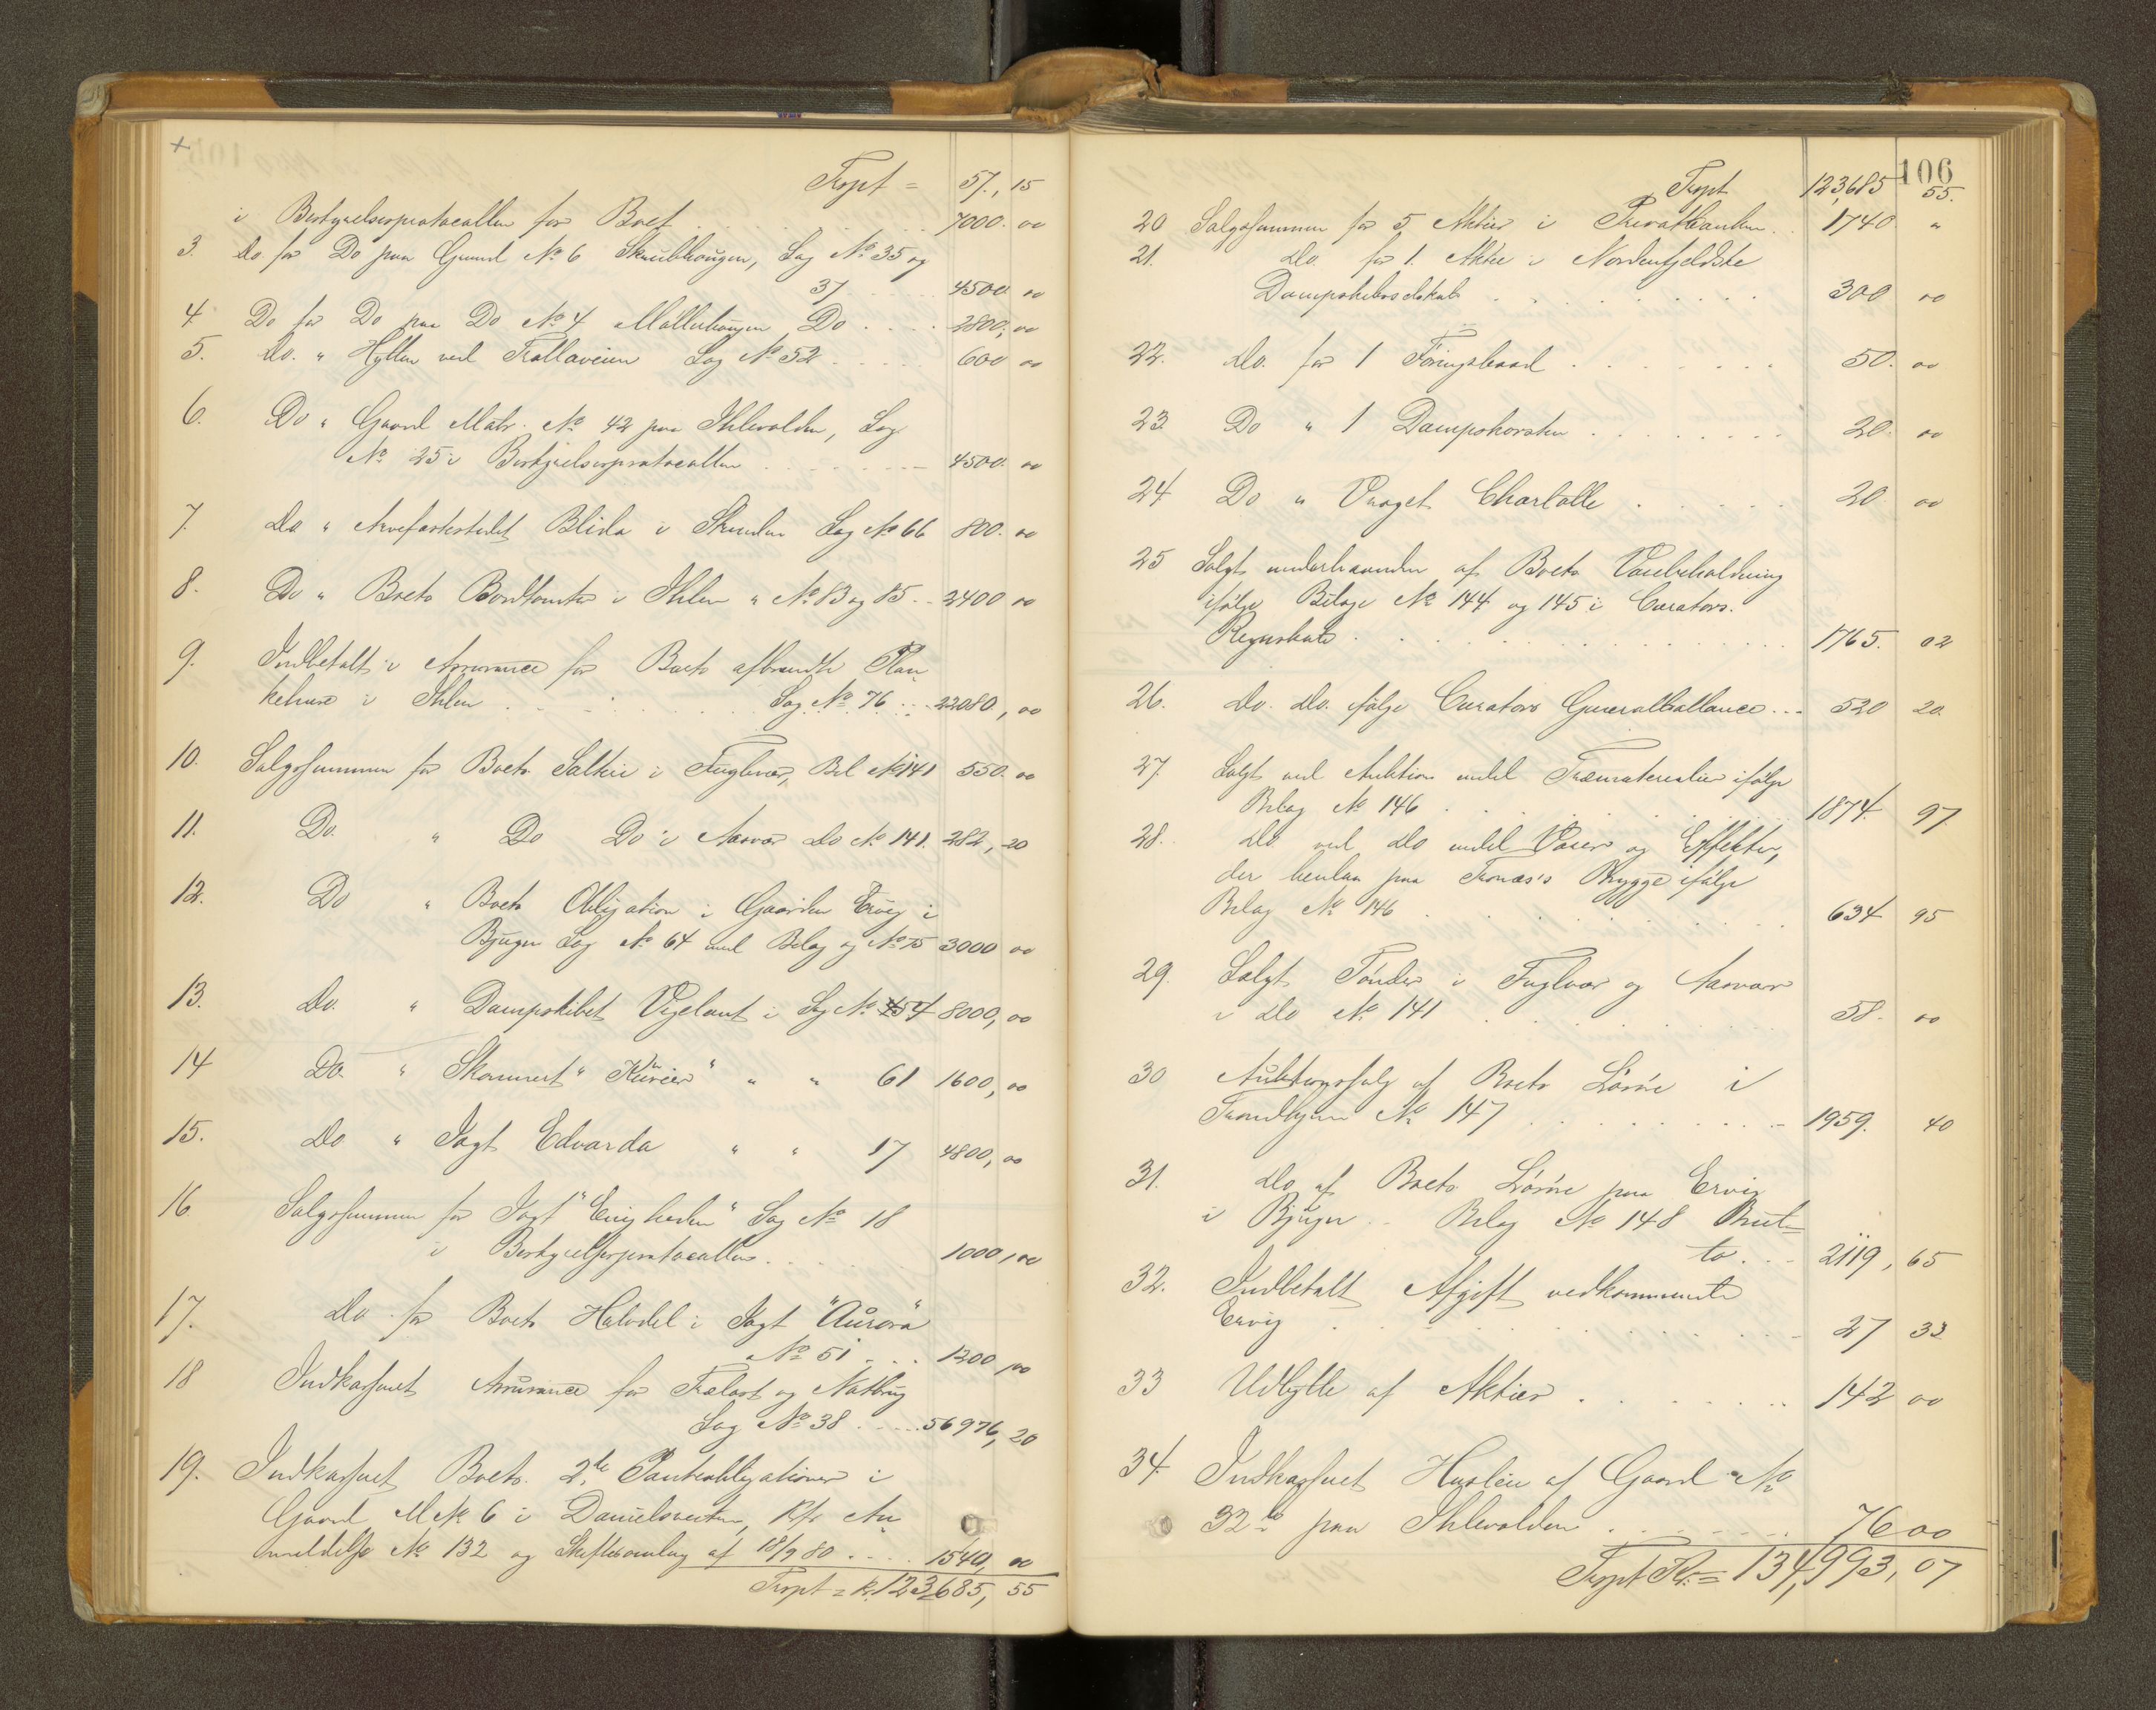 +
Trspt = 57., 15
i Bestyrelsesprotocollen for Boet 7000. 00
3. Do for Do paa Grund No 6 Skrubhaugen, Lag No 35 og
37 4500 00
4. Do for Do paa Do No 4 Møllerhaugen Do 2800, 00
5. Do. " Hytten ved Trollaveien Lag No 52 600 00
6. Do " Gaard Matr. No 42 paa Ihlevolden, Lag
No 25 i Bestyrelsesprotocollen 4500. 00
7. Do " Arvefæstestedet Blida i Skruden Lag No 66 800. 00
8. Do " Boets Bordtomter i Ihlen " No 83 og 85 2400 00
9. Indbetalt i Assurance for Boets afbrændte Plan
kehuse i Ihlen Lag No 76 22080, 00
10. Salgssummen for Boets Salterie i Fuglvær, Bil No 141 550. 00
11. Do. " Do Do i Aasvær Do No 141. 282, 20
12. Do " Boets Obligation i Gaarden Ervig i
Bjugn Lag No 64 med Bilag og No 75 3000 00
13. Do. " Dampskibet Vigelant i Lag No 54 8000, 00
14 Do. " Skonnert "Kurier" " " 61 1600, 00
15. Do " Jagt Edvarda " " 17 4800, 00
16 Salgssummen for Jagt "Enigheden" Lag No 18
i Bestyrelsesprotocollen 1000, 00
17. Do for Boets Halvdel i Jagt "Aurora"
No 51 1200, 00
18 Indkasseret Assurance for Trælast og Natbrug
Lag No 38 56976, 20
19. Indkasseret Boets 2de Panteobligationer i
Gaard M No 6 i Danielsveiten, Kfr An
meldelse No 132 og Skiftesamling af 18/9 80 1540, 00
Trspt = Kr. 123685, 55
106
Trspt 123,685 55.
20 Salgssummen for 5 Aktier i Privatbanken 1740. "
21. Do. for 1. Aktie i Nordenfjeldske
Dampskibsselskab 300 00
22. Do. for 1 Føringsbaad 50. 00
23. Do " 1 Dampskorsten 20. 00
24 Do " Vraget Charlotte 20 00
25 Solgt underhaanden af Boets Varebeholdning
ifølge Bilage No 144 og 145 i Curators.
Regnskab 1765. 02
26. Do. Do. ifølge Curators Generalballance 520 20.
27. Solgt ved Auktion endel Træmaterialier ifølge
Bilag No 146 1874. 97.
28. Do ved Do endel Varer og Effekter,
der henlaa paa Tronæs's Brygge ifølge
Bilag No 146 634 95
29. Solgt Tønder i Fuglvær og Aasvær
i Do No 141 58. 00
30 Auktionssalg af Boets Løsøre i
Trondhjem No 147 1959. 40
31. Do af Boets Løsøre paa Ervig
i Bjugn Bilag No 148 Brut=
to. 2119, 65
32. Indbetalt Afgift vedkommende
Ervig 27 33
33 Udbytte af Aktier 142 00
34. Indkasseret Husleie af Gaard No
32 b paa Ihlevolden 76 00
Trspt Kr. = 134,993, 07